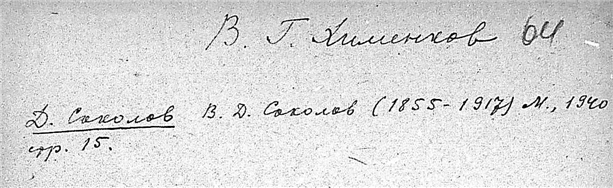 В. Г. Хименков 64
Д. Соколов В. Д. Соколов (1855-1917) М., 1940
стр. 15.